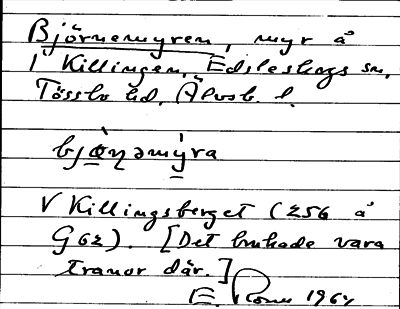 Björnemyren, myr å
1 Killingen, Edsleskogs sn,
Tössbo hd, Älvsb. l.
bjø̀ŋəmýra
V Killingsberget (256 å
G62). [Det brukade vara
tranor där.]
E. 1964